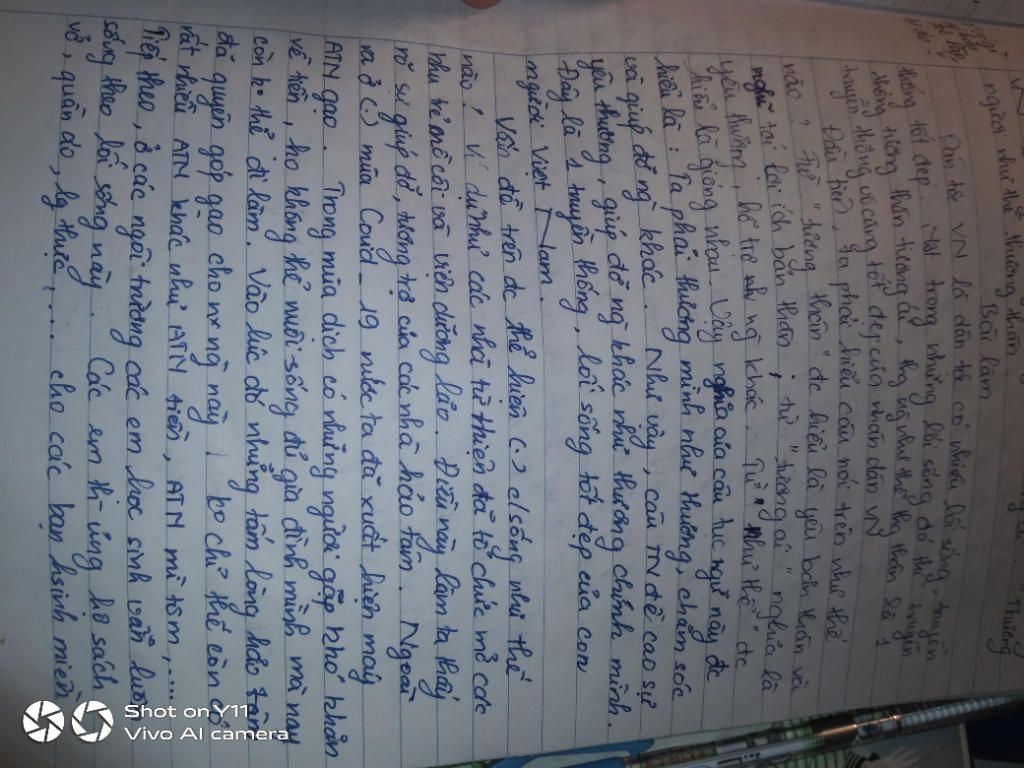 người như thể thương thân
Bài làm
Dân tộc VN là dân tộc có nhiều lối sống, truyền
thống tốt đẹp. Một trong những lối sống đó thì truyền
thống tương thân tương ái, thg ng như thể thg thân là 1
truyền thống vô cùng tốt đẹp của nhân dân VN
Đầu tiên, ta phải hiểu câu nói trên như thế
nào, Từ "thương thân" đc hiểu là yêu bản thân và
nghĩ tới lợi ích bản thân, từ "tương ái" nghĩa là
yêu thương, hỗ trợ ng khác. Từ "như thể" đc
hiểu là giống nhau. Vậy nghĩa của câu tục ngữ này đc
hiểu là: Ta phải thương mình như thương, chăm sóc
và giúp đỡ ng khác. Như vậy, câu TN đề cao sự
yêu thương, giúp đỡ ng khác như thương chính mình.
Đây là 1 truyền thống, lối sống tốt đẹp của con
người Việt Nam.
Vấn đề trên đc thể hiện (.) c/sống như thế
nào, Ví dụ như các nhà từ thiện đã tổ chức mở các
khu trẻ mồ côi và viện dưỡng lão. Điều này làm ta thấy
rõ sự giúp đỡ, tương trợ của các nhà hảo tâm. Ngoài
ra ở (.) mùa Covid_19 nước ta đã xuất hiện máy
ATN gạo. Trong mùa dịch có những người gặp khó khăn
về tiền, họ không thể nuôi sống đủ gia đình mình mà nay
còn ko thể đi làm. Vào lúc đó những tấm lòng hảo tâm
đã quyên góp gạo cho ng này, ko chỉ thế còn có
rất nhiều ATN khác như ATN tiền, ATN mì tôm,....
Tiếp theo, ở các ngôi trường các em học sinh vẫn luôn
sống theo lối sống này. Các em thì ủng hộ sách
vở, quần áo, lg thực,.... cho các bạn hsinh miền
Shot on Y11
Vivo AI camera